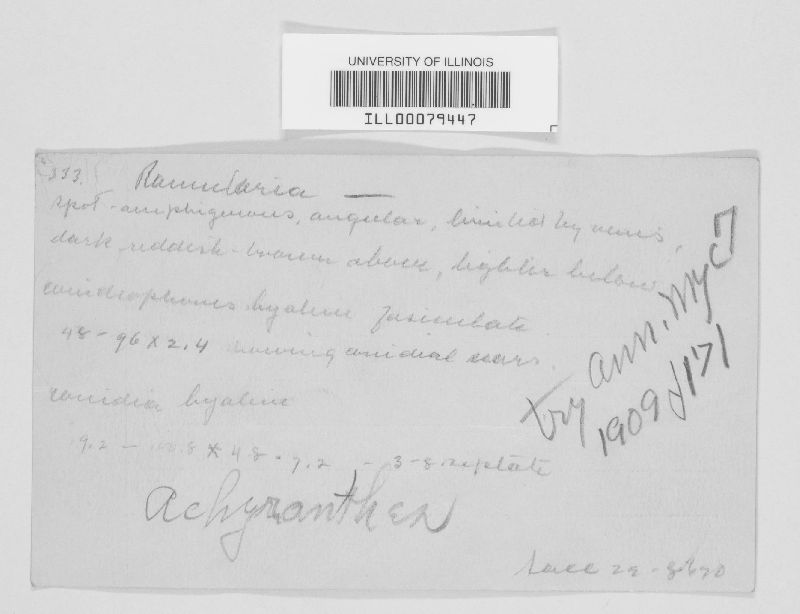 UNIVERSITY OF ILLINOIS
ILL00079447
333. Ramularia —
spot-amphigenous, angular, limited by veins,
dark reddish-brown above, lighter below
conidiophores hyaline fasiculate
48-96 x 2.4 showing conidial scars.
conidia hyaline
9.2 - x 4.8 - 7.2 - 3-8 septate
try ann. Myc 7
1909 p 171
Achyranthes
Sacc 22-